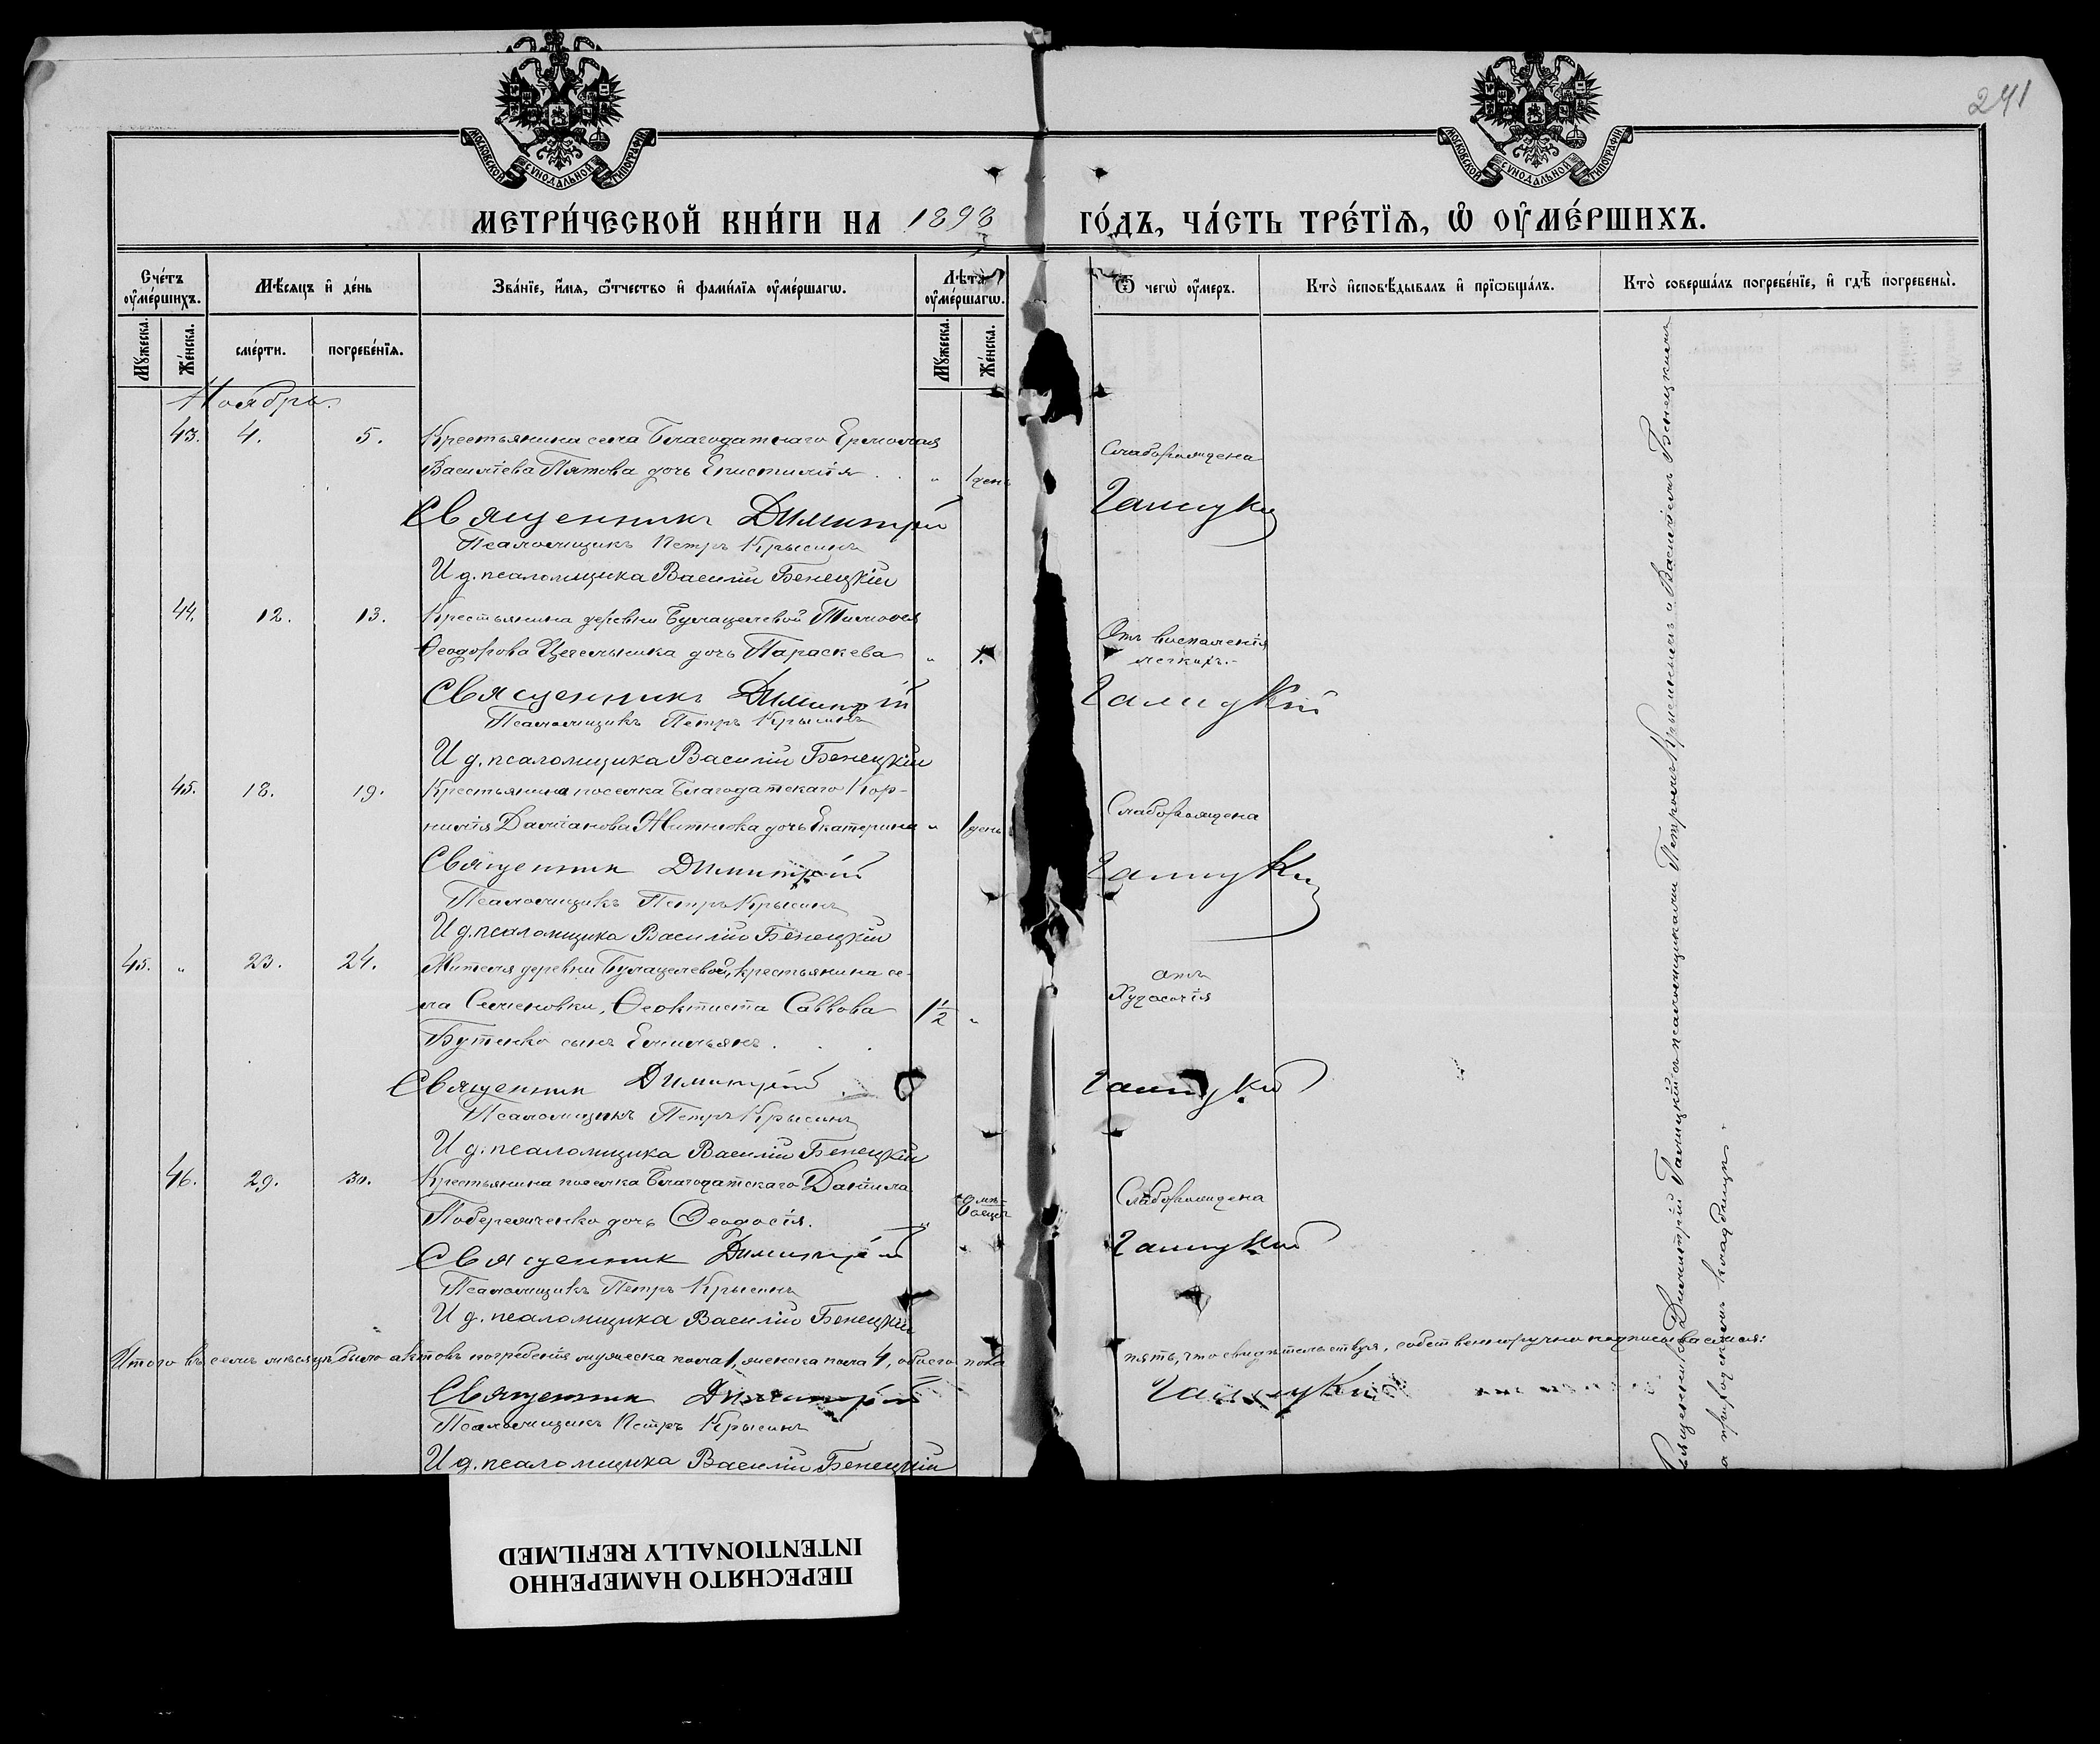 241
МОСКОВСКОЙ СУНОДАЛЬНОЙ ТИПОГРАФІИ
МОСКОВСКОЙ СУНОДАЛЬНОЙ ТИПОГРАФІИ
МЕТРИ́ЧЕСКОЙ КНИ́ГИ НА 1898 ГО́ДЪ, ЧА́СТЬ ТРЕ́ТЇѦ, Ѡ҆ ОУ҆МЕ́РШИХЪ.
Сче́тъ оу҆ме́ршихъ.
Мѣ́сяцъ и҆ де́нь
Зва́нїе, и҆́мя, ѻ҆́тчество и҆ фами́лїя оу҆ме́ршагѡ.
Лѣ́та оу҆ме́ршагѡ.
Ѿ чегѡ̀ оу҆́меръ.
Кто̀ и҆сповѣ́дывалъ и҆ прїѡбща́лъ.
Кто̀ соверша́лъ погребе́нїе, и҆ гдѣ̀ погребены̀.
Му́жеска.
Же́нска.
сме́рти.
погребе́нїя.
Му́жеска.
Же́нска.
Ноябрь.
43. 4. 5. Крестьянина села Благодатнаго Ермолая
Василіева Пятова дочь Епистимія . . " 1 день Слаборождена
Священникъ Димитрій Галицкій
Псаломщикъ Петръ Крысинъ
И д. псаломщика Василій Бенецкій
44. 12. 13. Крестьянина деревни Булацелевой Тимофея
Ѳеодорова Цегельника дочь Параскева " 1. Отъ воспаленія
легкихъ.-
Священникъ Димитрій Галицкій
Псаломщикъ Петръ Крысинъ
И д. псаломщика Василій Бенецкій
45. 18. 19. Крестьянина поселка Благодатскаго Кор-
нилія Даміанова Житнюка дочь Екатерина " 1 день Слаборождена
Священник Димитрій Галицкій
Псаломщикъ Петръ Крысинъ
И д. псаломщика Василій Бенецкій
45. " 23. 24. Жителя деревни Булацелевой, крестьянина се-
ла Семеновки, Ѳеоктиста Саввова 1½ " отъ Худосочія
Бутенко сынъ Емильянъ . . .
Священник Димитрій Галицкій
Псаломщикъ Петръ Крысинъ
И д. псаломщика Василій Бенецкій
46. 29. 30. Крестьянина поселка Благодатскаго Данила
Побережченко дочь Ѳеодосія. " Слаборождена
Священник Димитрій Галицкій
Псаломщикъ Петръ Крысинъ
И д. псаломщика Василій Бенецкій
Итого въ семъ мѣсяцѣ было актовъ погребенія мужеска пола 1, женска пола 4, обоего пола пять, что свидѣтельствуя, собственноручно подписываемся:
Священник Димитрій Галицкій
Псаломщикъ Петръ Крысинъ
И д. псаломщика Василій Бенецкій
Священникъ Димитрій Галицкій съ псаломщиками Петромъ Крысинымъ и Василіемъ Бенецкимъ
на приходскомъ кладбищѣ.
ПЕРЕСНЯТО НАМЕРЕННО
INTENTIONALLY REFILMED